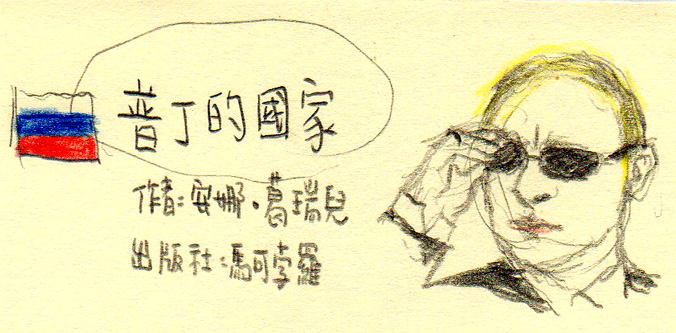 普丁的國家
作者:安娜·葛瑞兒
出版社:馮可孛羅